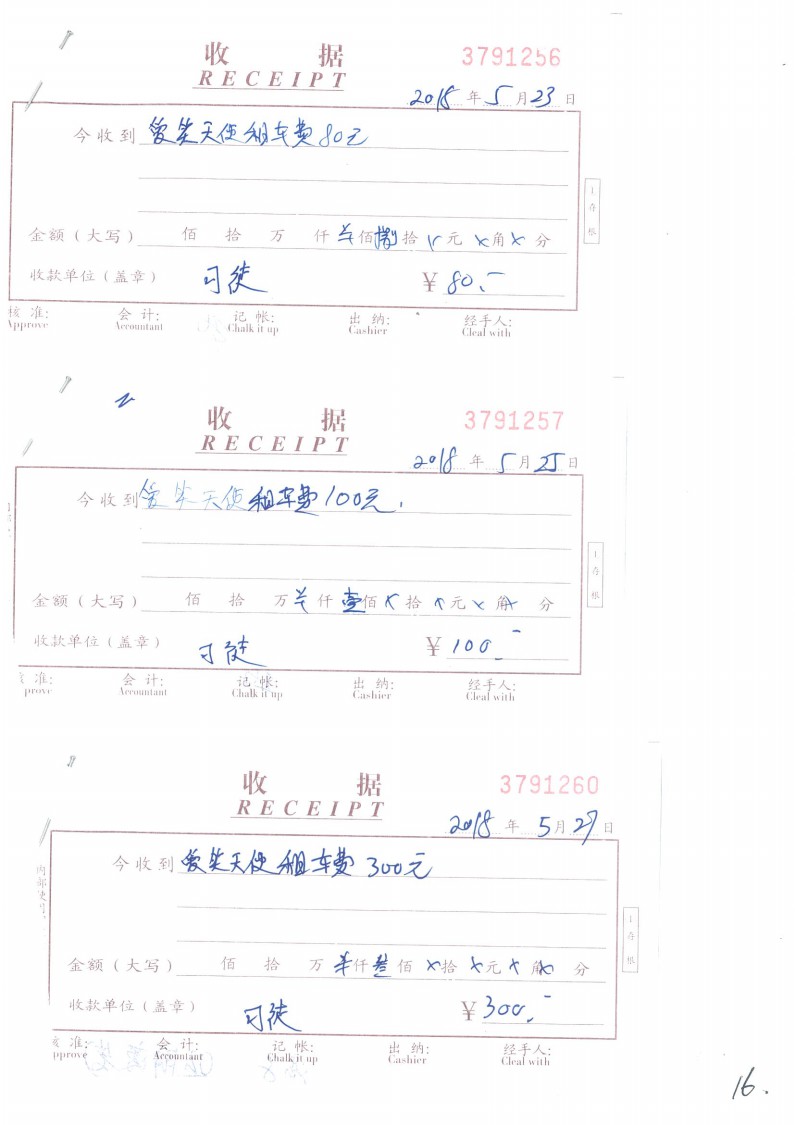 收 据 3791256
RECEIPT
2018 年 5 月 23 日
今收到 爱笑天使租车费80元
1存根
金额（大写） 佰 拾 万 仟 佰 捌 拾 元 × 角 × 分
收款单位（盖章） 司徒 ¥ 80.-
核 准: 会 计: 记 帐: 出 纳: 经手人:
Approve Accountant Chalk it up Cashier Cleal with
收 据 3791257
RECEIPT
2018 年 5 月 25 日
今收到 爱笑天使租车费100元.
1存根
金额（大写） 佰 拾 万 仟 壹 佰 × 拾 × 元 × 角 × 分
收款单位（盖章） 司徒 ¥ 100.-
准: 会 计: 记 帐: 出 纳: 经手人:
prove Accountant Chalk it up Cashier Cleal with
收 据 3791260
RECEIPT
2018 年 5 月 27 日
今收到 爱笑天使租车费 300元
1存根
金额（大写） 佰 拾 万 仟 叁 佰 × 拾 × 元 × 角 × 分
收款单位（盖章） 司徒 ¥ 300.-
准: 会 计: 记 帐: 出 纳: 经手人:
pprove Accountant Chalk it up Cashier Cleal with
16.